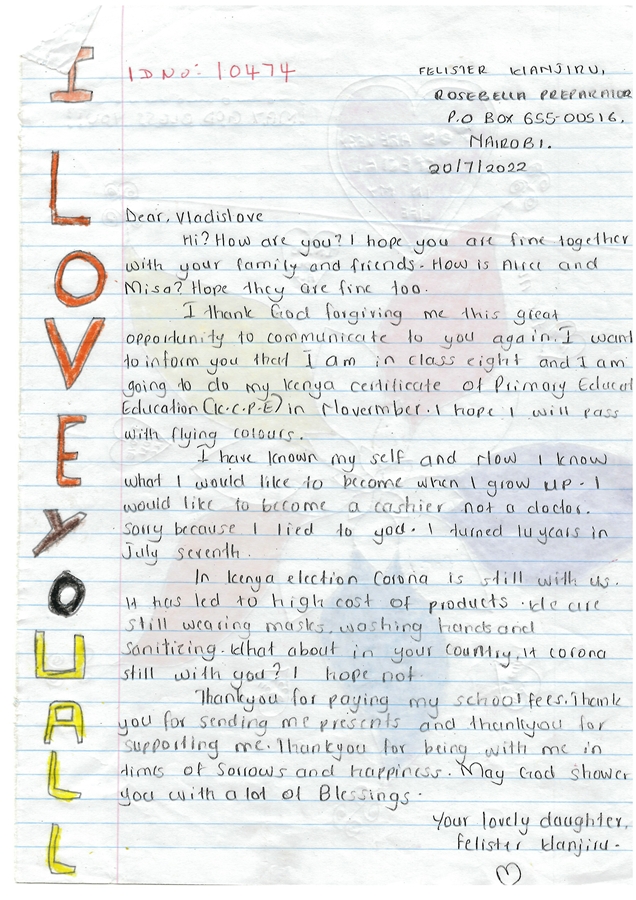 I LOVE YOU ALL
IDNO: 10474
FELISTER WANJIRU,
ROSEBELLA PREPARATOR
P.O BOX 655-00516.
NAIROBI.
20/7/2022
Dear, Vladislove
Hi? How are you? I hope you are fine together
with your family and friends. How is Alice and
Misa? Hope they are fine too.
I thank God forgiving me this great
opportunity to communicate to you again. I want
to inform you that I am in class eight and I am
going to do my Kenya certificate of Primary Educat
Education (K.C.P.E) in Novermber. I hope I will pass
with flying colours.
I have known my self and Now I know
what I would like to become when I grow up. I
would like to become a cashier not a doctor.
Sorry because I lied to you. I turned 14 years in
July seventh.
In Kenya election Corona is still with us.
It has led to high cost of products. We are
still wearing masks, washing hands and
sanitizing. What about in your country, It corona
still with you? I hope not.
Thankyou for paying my school fees. Thank
you for sending me presents and thankyou for
supporting me. Thankyou for being with me in
times of Sorrows and happiness. May God shower
you with a lot of Blessings.
Your lovely daughter,
Felister Wanjiru.